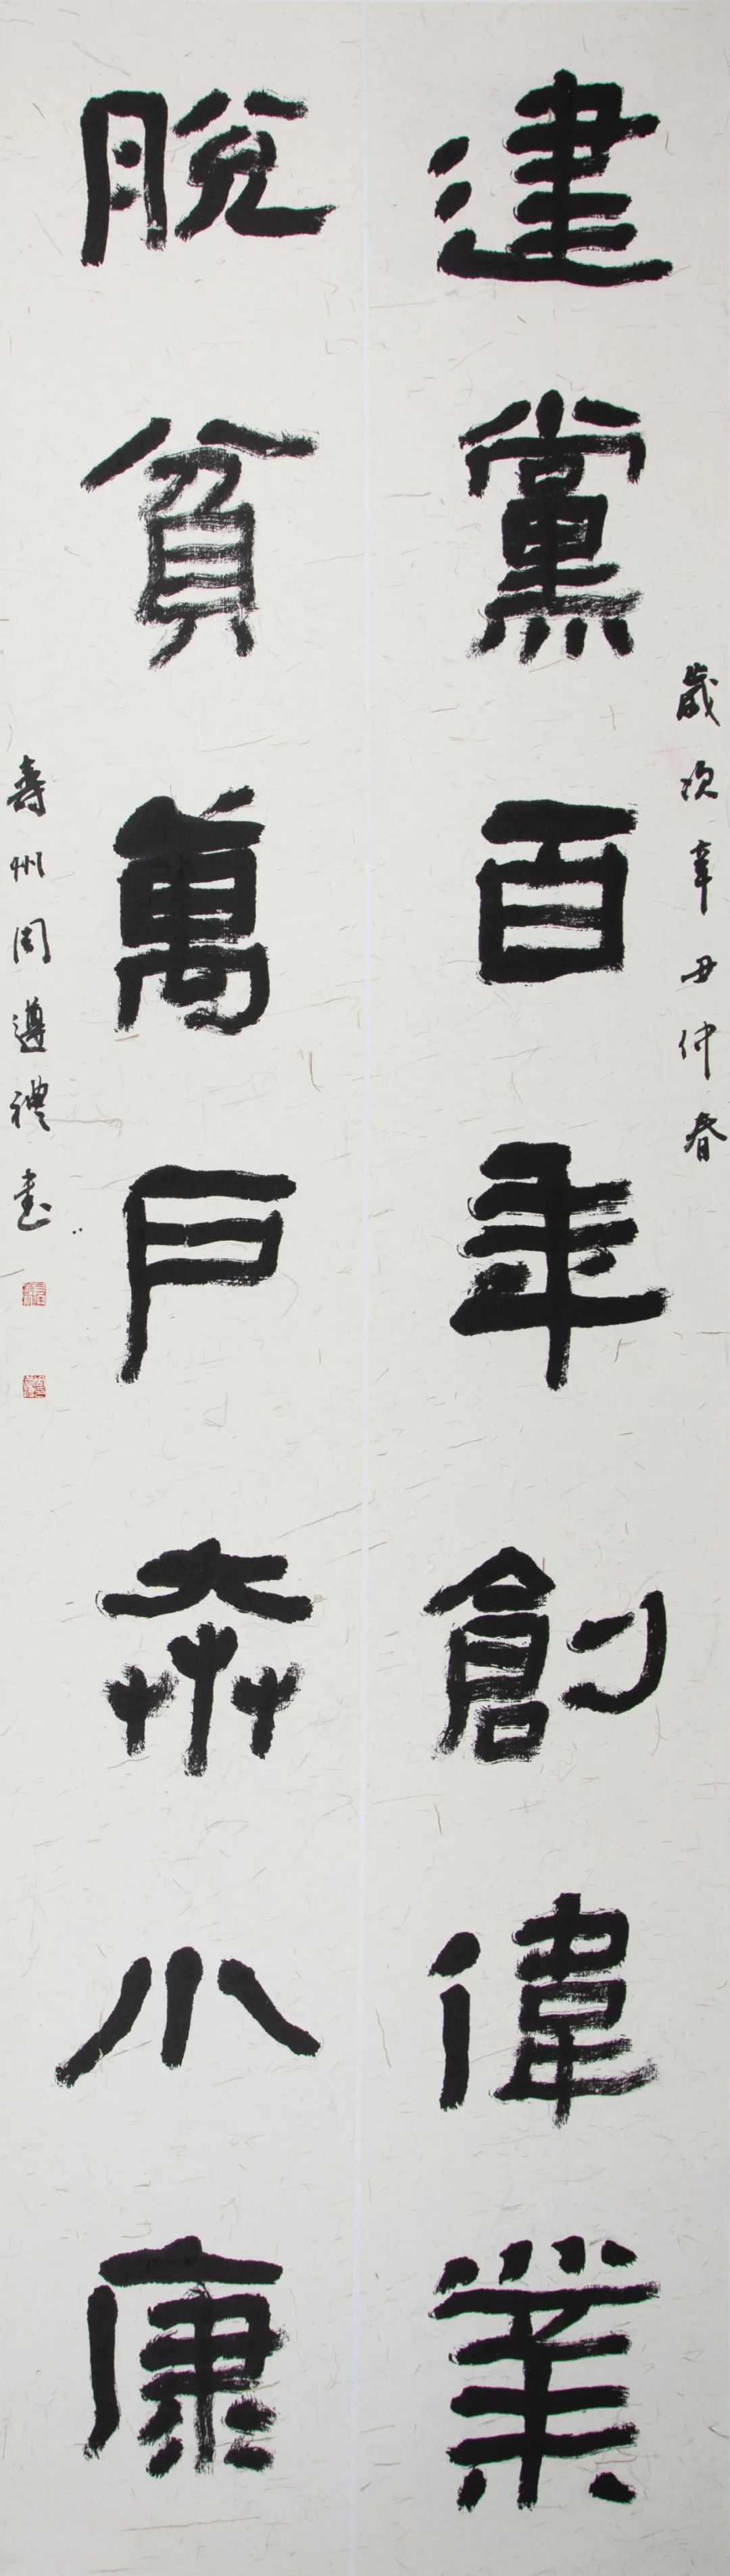 歲次辛丑仲春
建黨百年創偉業
脫貧萬戶奔小康
壽州周遵禮書